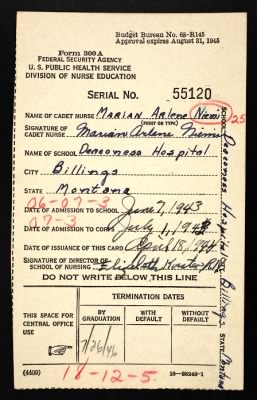 Budget Bureau No. 68-R145
Approval expires August 31, 1945
Form 300A
FEDERAL SECURITY AGENCY
U. S. PUBLIC HEALTH SERVICE
DIVISION OF NURSE EDUCATION
SERIAL NO. 55120
NAME OF CADET NURSE Marian Arlene Niemi
(PRINT OR TYPE)
25
SIGNATURE OF CADET NURSE Marian Arlene Niemi
NAME OF SCHOOL Deaconess Hospital
CITY Billings
STATE Montana
06-07-3
DATE OF ADMISSION TO SCHOOL June 7, 1943
07-3
DATE OF ADMISSION TO CORPS July 1, 1943
DATE OF ISSUANCE OF THIS CARD April 18, 1944
SIGNATURE OF DIRECTOR OF SCHOOL OF NURSING Elizabeth
DO NOT WRITE BELOW THIS LINE
THIS SPACE FOR CENTRAL OFFICE USE
TERMINATION DATES
BY GRADUATION
WITH DEFAULT
WITHOUT DEFAULT
7/26/46
(4409)
18-12-5.
16-38249-1
Deaconess Hospital
Billings
STATE Montana